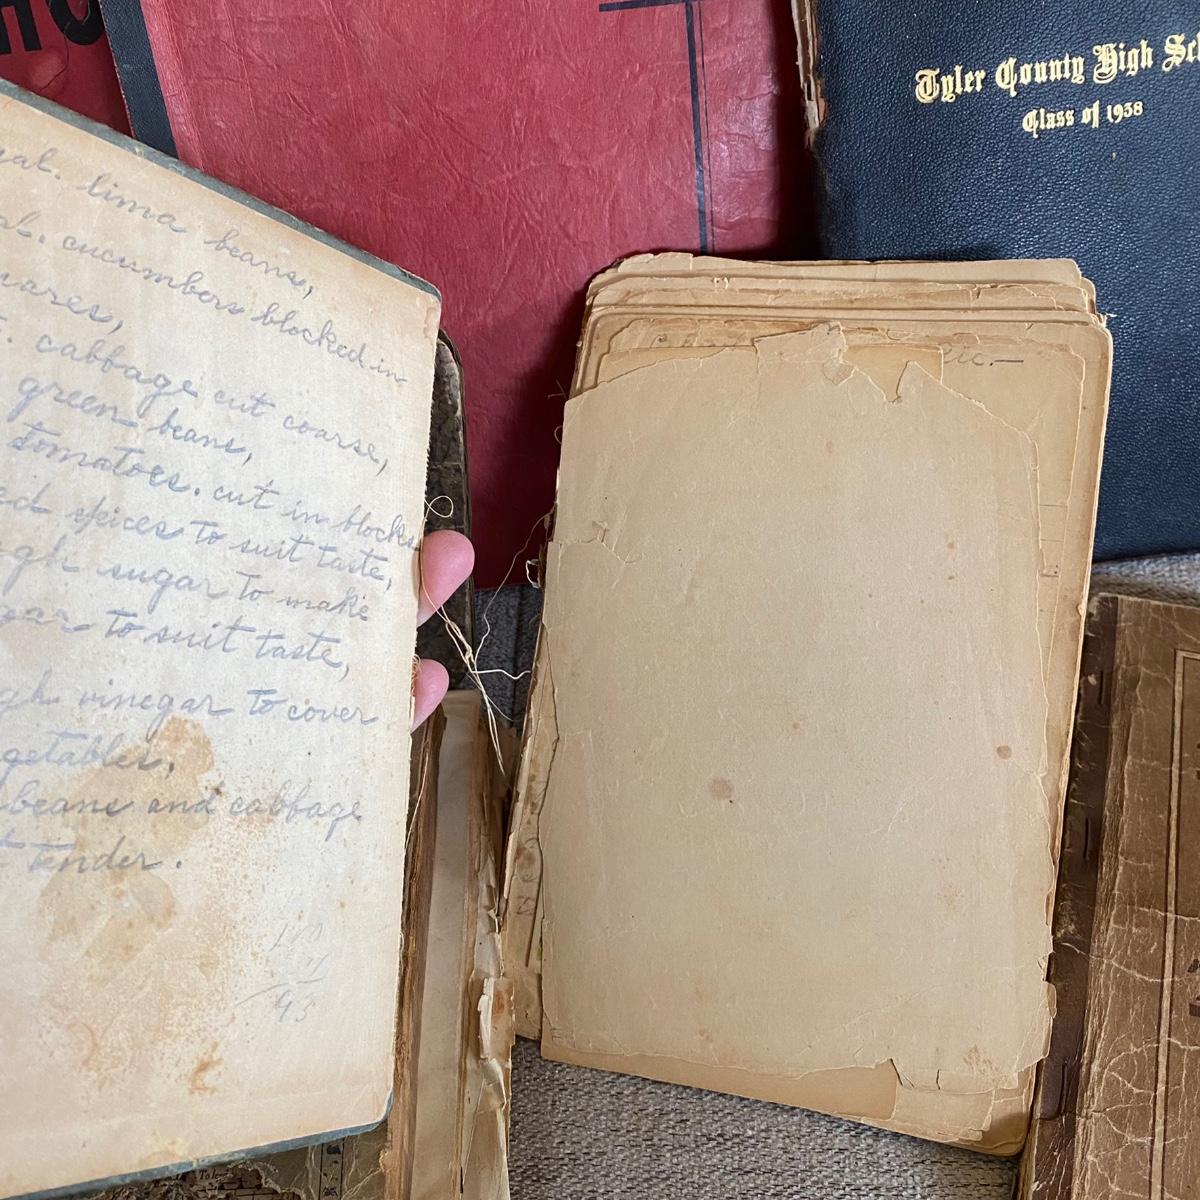 Tyler County High Sch
Class of 1938
gal. lima beans,
al. cucumbers blocked in
uares,
t. cabbage cut coarse,
green beans,
tomatoes. cut in blocks
ed spices to suit taste,
ugh sugar to make
gar to suit taste,
gh vinegar to cover
getables,
beans and cabbage
t tender.